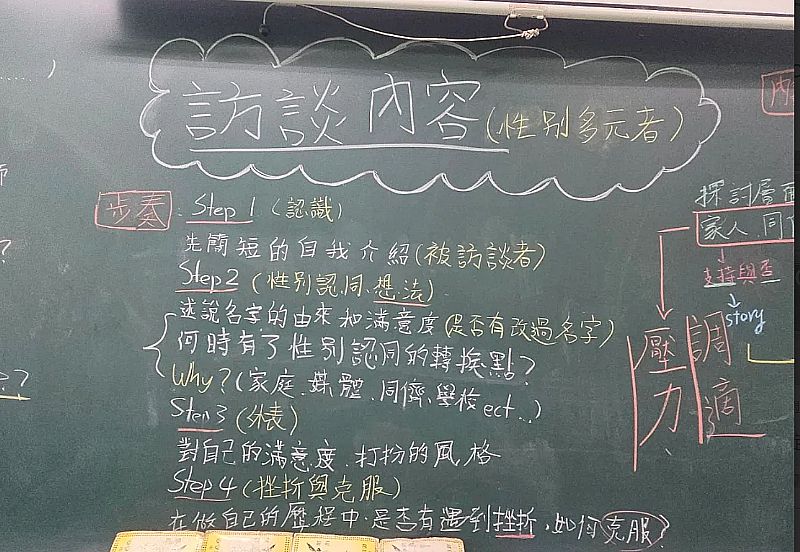 訪談內容(性別多元者)
步奏:Step 1 (認識)
先簡短的自我介紹(被訪談者)
Step2 (性別認同、想法)
述說名字的由來和滿意度(是否有改過名字)
何時有了性別認同的轉換點?
Why?(家庭、媒體、同儕、學校ect...)
Step3 (外表)
對自己的滿意度、打扮的風格
Step4 (挫折與克服)
在做自己的歷程中,是否有遇到挫折,如何克服?
內
探討層面
家人、同儕
支持與否
story
壓力、
調適